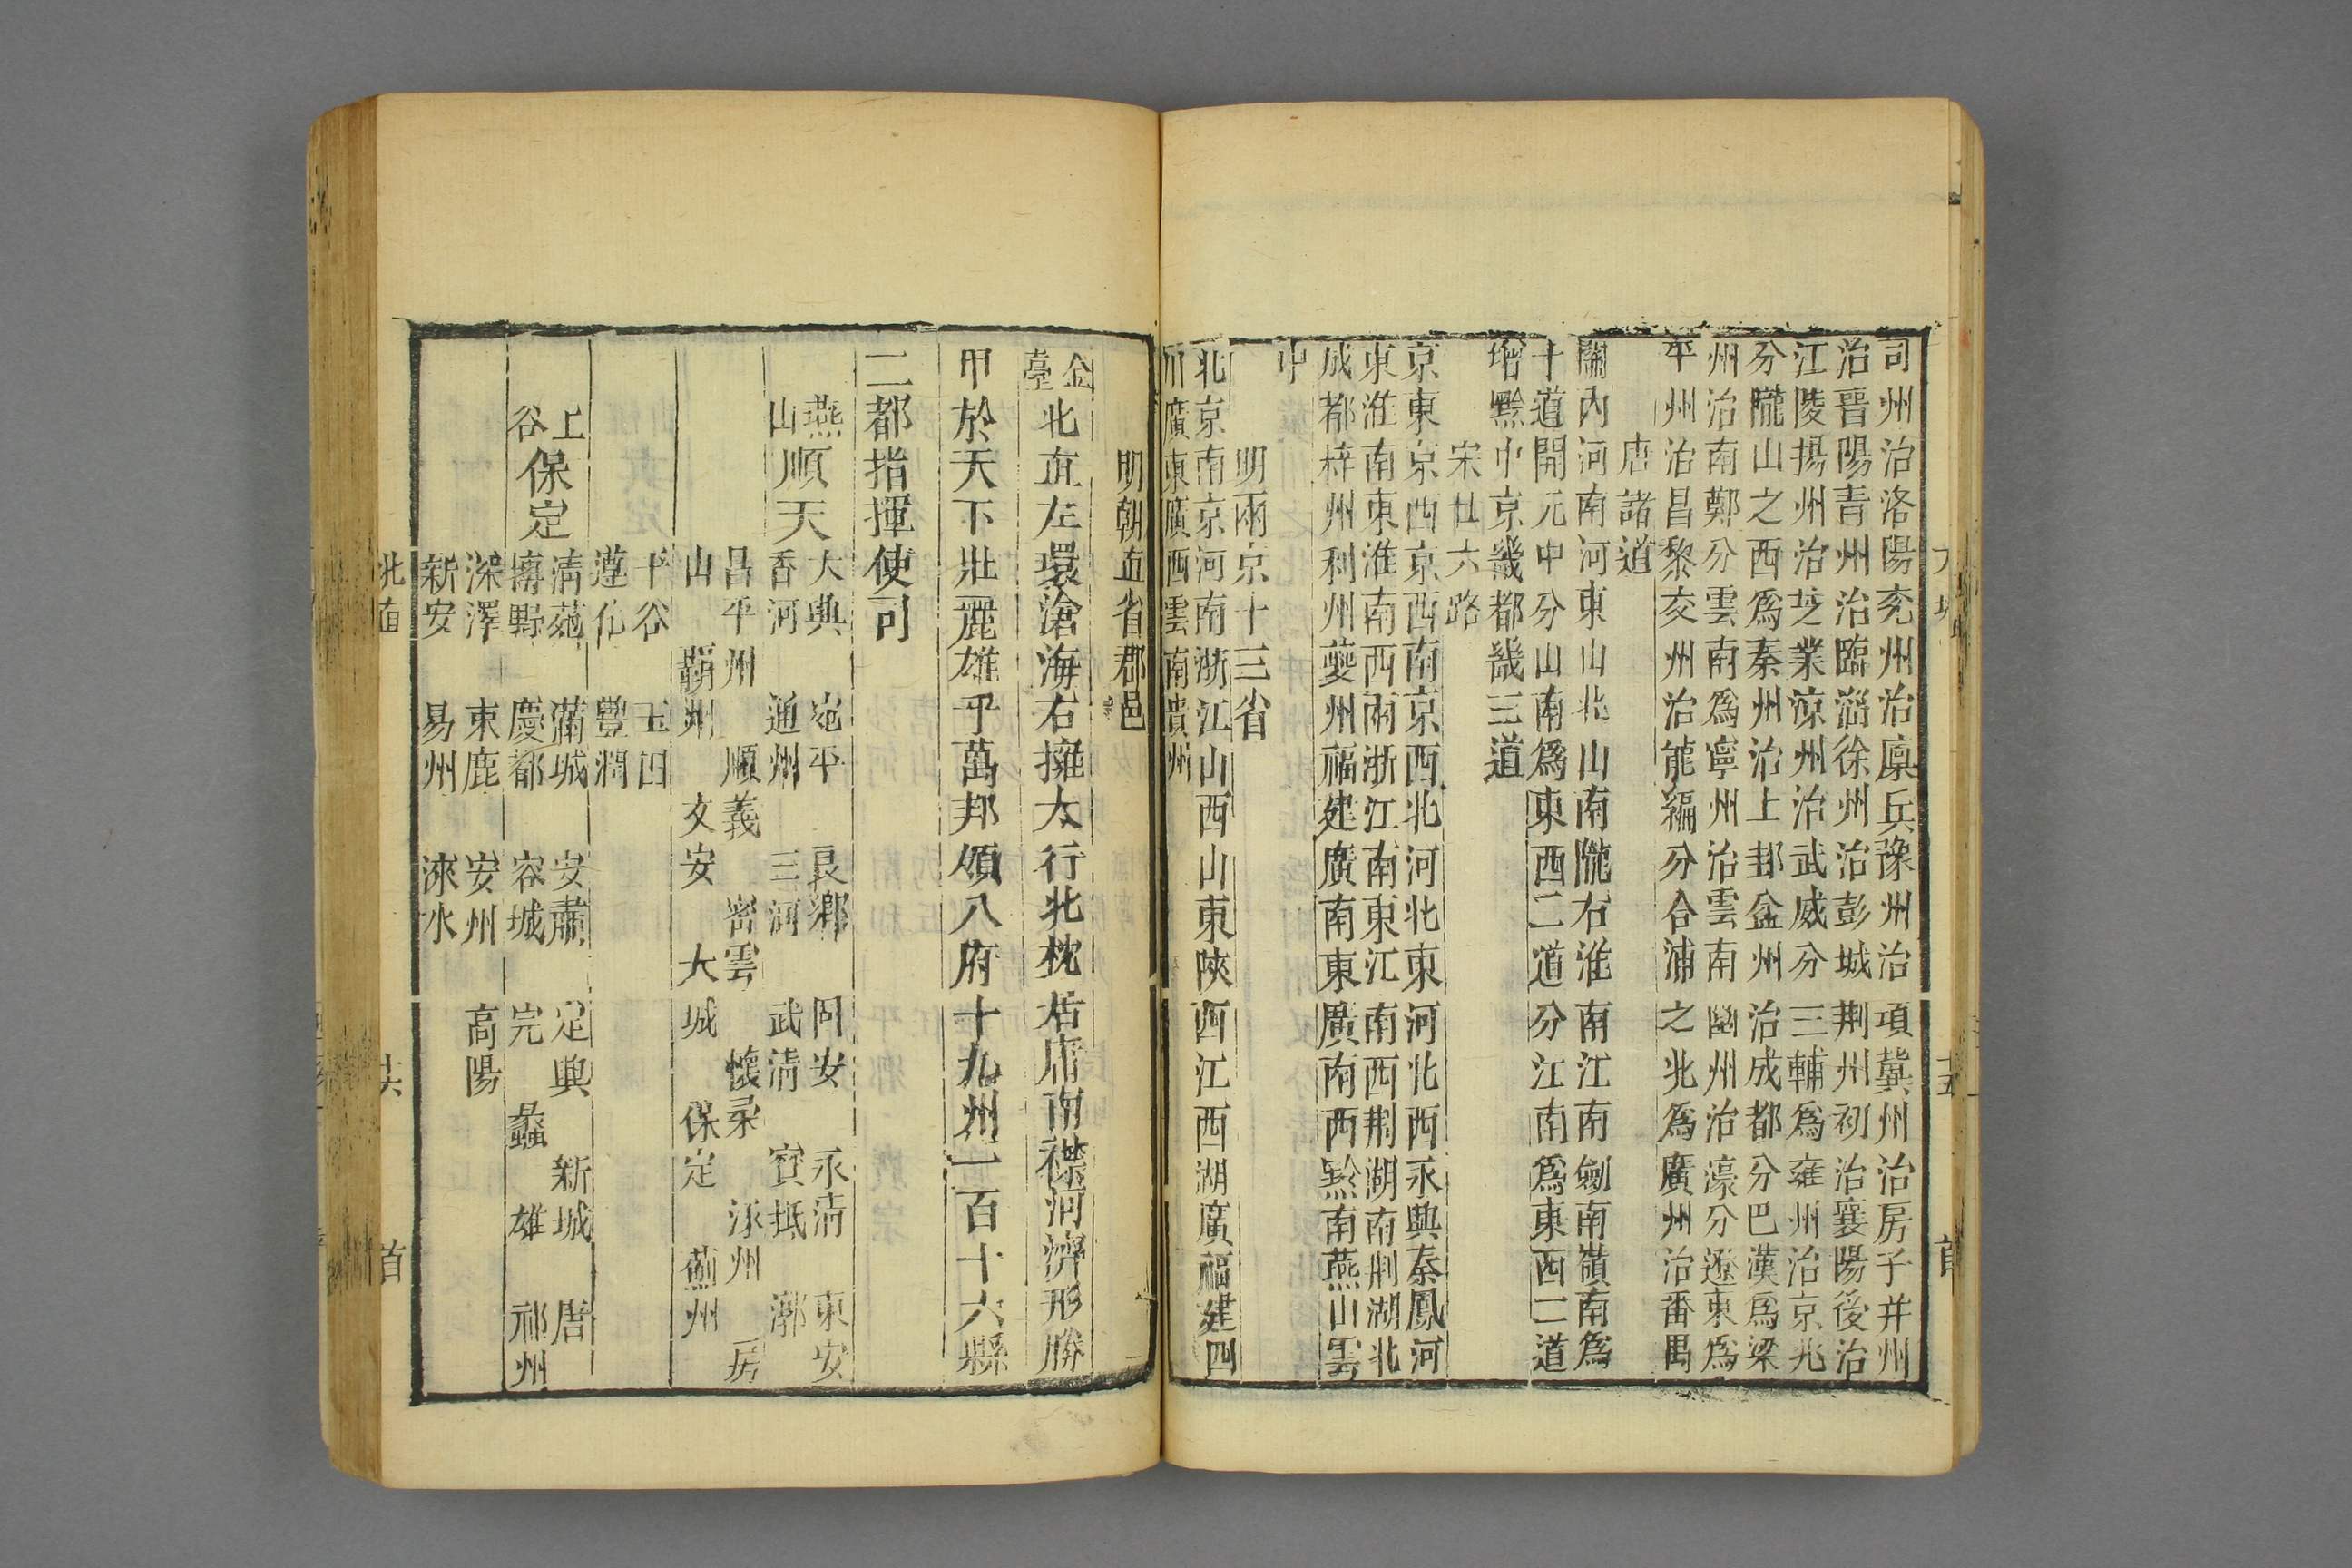 司州治洛陽兖州治廩兵豫州治項冀州治房子并州
治晉陽青州治臨淄徐州治彭城荆州初治襄陽後治
江陵揚州治芝業凉州治武威分三輔爲雍州治京兆
分隴山之西爲秦州治上邽益州治成都分巴漢爲梁
州治南鄭分雲南爲寧州治雲南幽州治濠分遼東爲
平州治昌黎亥州治龍編分合浦之北爲廣州治番禺
唐諸道
關内河南河東山北山南隴右淮南江南劒南嶺南爲
十道開元中分山南爲東西二道分江南爲東西二道
增黔中京畿都畿三道
宋廿六路
京東京西京西南京西北河北東河北西永興秦鳳河
東淮南東淮南西兩浙江南東江南西荆湖南荆湖北
成都梓州利州夔州福建廣南東廣南西黔南燕山雲
中
明兩京十三省
北京南京河南浙江山西山東陝西江西湖廣福建四
川廣東廣西雲南貴州
明朝直省郡邑
金臺北直左環滄海右擁太行北枕居庸南襟河濟形勝
甲於天下壯麗雄乎萬邦領八府十九州一百十六縣
二都指揮使司
燕山順天
大興 宛平 良鄉 固安 永清 東安
香河 通州 三河 武清 寶抵 漷
昌平州 順義 密雲 懷柔 涿州 房
山 覇州 文安 大城 保定 薊州
平谷 玉田
遵化 豐潤
上谷保定
清苑 滿城 安肅 定興 新城 唐
博野 慶都 容城 完 蠡 雄 祁州
深澤 東鹿 安州 高陽
新安 易州 淶水
北直 共 首